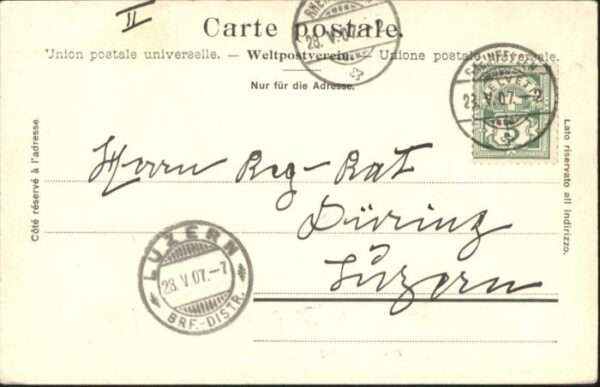 II
Carte postale.
Union postale universelle. — Weltpostverein. — Unione postale universale.
Nur für die Adresse.
23. V. 07.
23. V. 07.–
HELVETIA
5
Côté réservé à l'adresse.
Lato riservato all indirizzo.
Herrn Reg-Rat
Düring
Luzern
LUZERN
23. V. 07.–7
BRF.-DISTR.